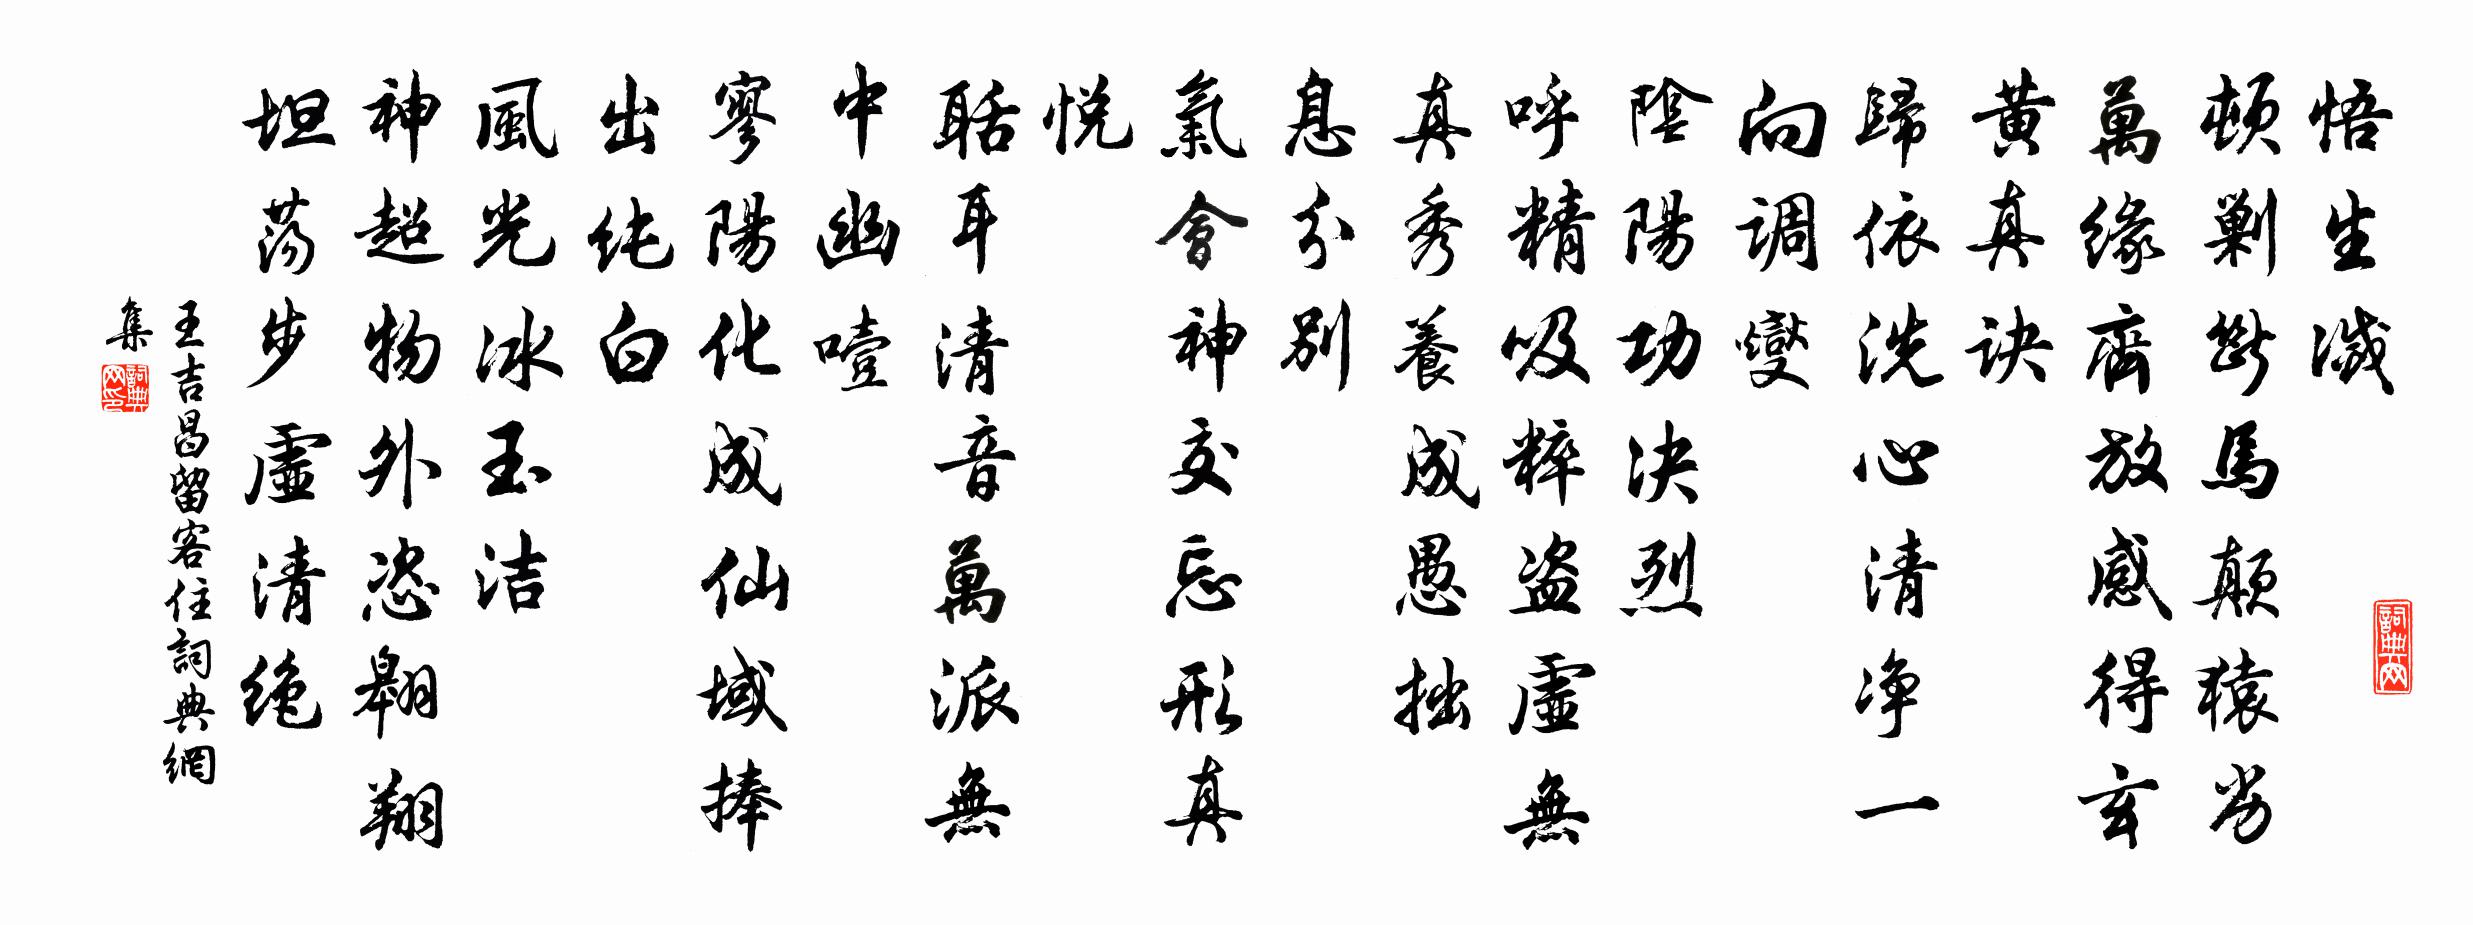 詞典网
悟生滅
頓剿斷馬顛猿劣
萬緣齊放感得玄
黄真訣
歸依洗心清净一
向調燮
陰陽功决烈
呼精吸粹盗虛無
真秀養成愚拙
息分别
氣會神交忘形真
悦
聒耳清音萬派無
中幽噎
寥陽化成仙域捧
出純白
風光冰玉洁
神超物外恣翱翔
坦荡步虛清絶
王吉昌留客住詞典網
集
詞典网印